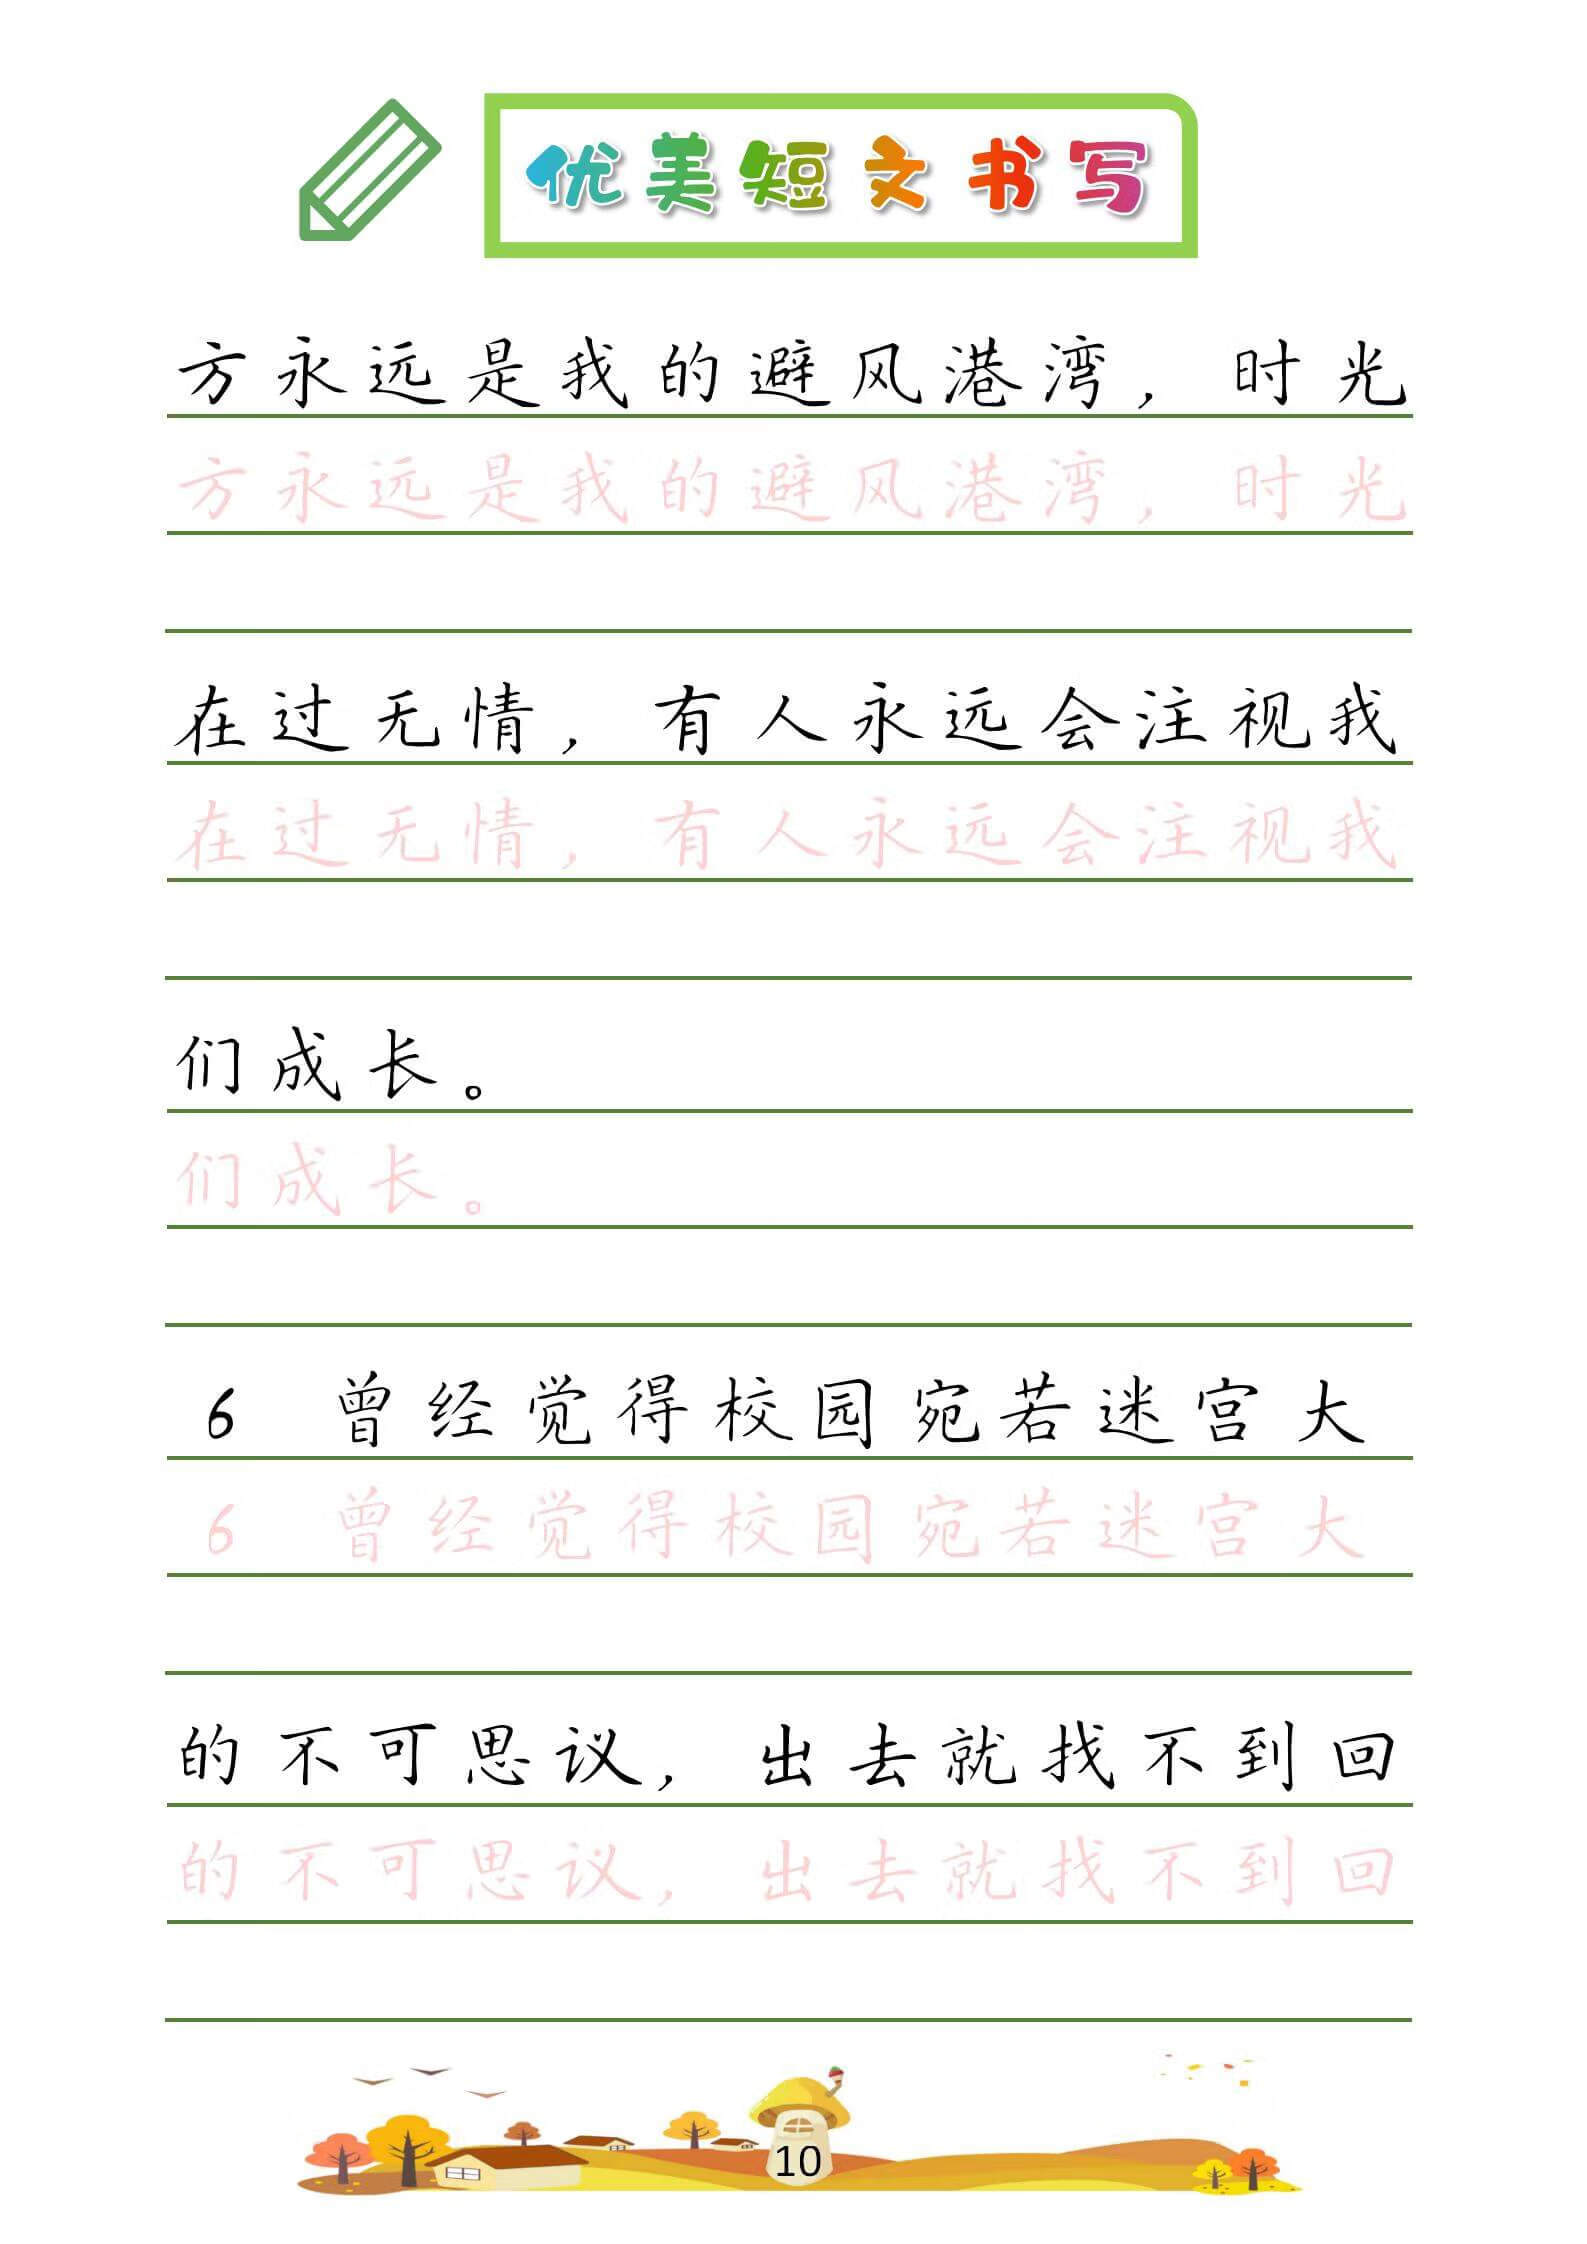 优美短文书写
方永远是我的避风港湾，时光
方永远是我的避风港湾，时光
在过无情，有人永远会注视我
在过无情，有人永远会注视我
们成长。
们成长。
6 曾经觉得校园宛若迷宫大
6 曾经觉得校园宛若迷宫大
的不可思议，出去就找不到回
的不可思议，出去就找不到回
10